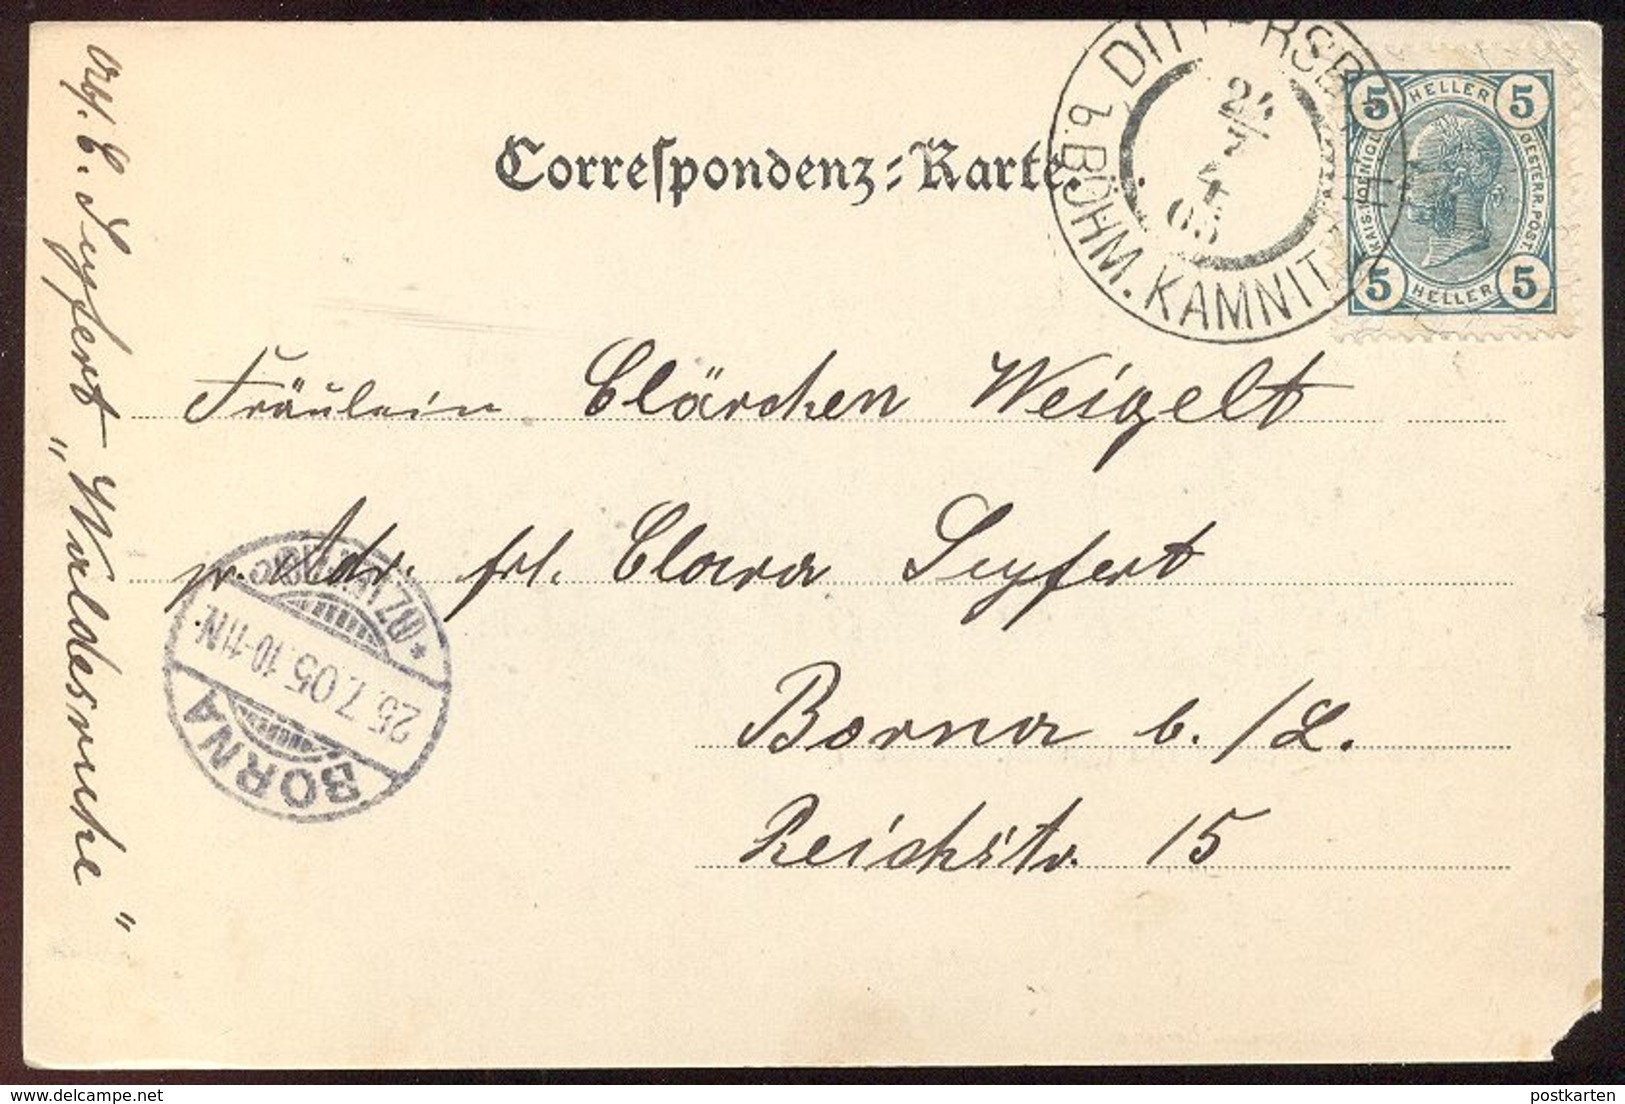 Correspondenz-Karte.
DITTERSB
b. BÖHM. KAMNIT
24
05
5 HELLER 5
KAIS. KÖNIGL.
OESTERR. POST.
5 HELLER 5
Fräulein Clärchen Weigelt
pr. Adr. frl. Clara Seyfert
Borna b./L.
Reichstr. 15
BORNA
25.7.05.10-11N.
* (BZ. LEIPZIG)
C. Seyfert
„Waldesruhe"
postkarten